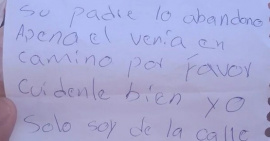 su padre lo abandono
Apena el venía en
camino por Favor
Cuidenle bien yo
Solo soy de la calle